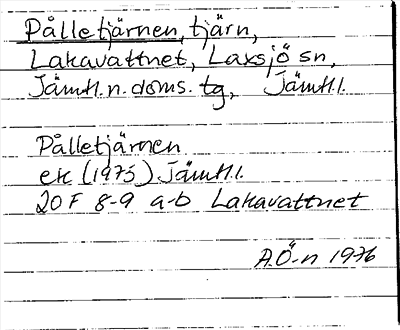 Pålletjärnen, tjärn,
Lakavattnet, Laxsjö sn,
Jämtl.n.doms.tg, Jämtl.l.
Pålletjärnen
ek (1975) Jämtl.l.
20F 8-9 a-b Lakavattnet
A.Ö-n 1976